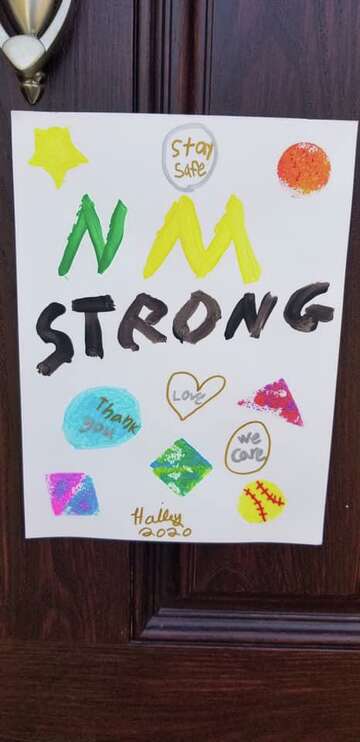 Stay
Safe
NM
STRONG
Love
Thank
you
we
care
Halley
2020